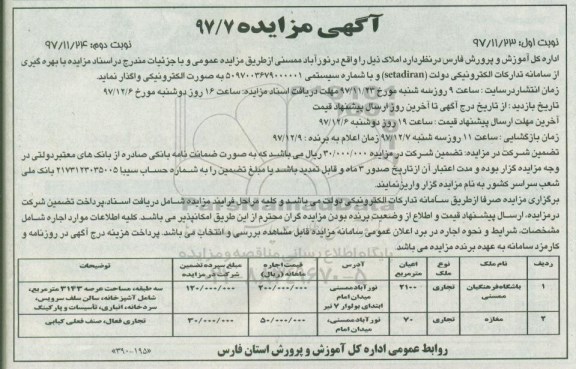 آگهی مزایده ۹۷/۷
نوبت اول: ۹۷/۱۱/۲۳
نوبت دوم: ۹۷/۱۱/۲۴
اداره کل آموزش و پرورش فارس در نظر دارد املاک ذیل را واقع در نورآباد ممسنی از طریق مزایده عمومی و با جزئیات مندرج در اسناد مزایده با بهره گیری
از سامانه تدارکات الکترونیکی دولت (setadiran) و با شماره سیستمی ۵۰۹۷۰۰۳۶۷۹۰۰۰۰۰۱ به صورت الکترونیکی واگذار نماید.
زمان انتشار در سایت: ساعت ۹ روز سه شنبه مورخ ۹۷/۱۱/۲۳ مهلت دریافت اسناد مزایده: ساعت ۱۶ روز دوشنبه مورخ ۹۷/۱۲/۶
تاریخ بازدید: از تاریخ درج آگهی تا آخرین روز ارسال پیشنهاد قیمت
آخرین مهلت ارسال پیشنهاد قیمت: ساعت ۱۹ روز دوشنبه ۹۷/۱۲/۶
زمان بازگشایی: ساعت ۱۱ روز سه شنبه ۹۷/۱۲/۷ زمان اعلام به برنده: ۹۷/۱۲/۹
تضمین شرکت در مزایده: تضمین شرکت در مزایده ۳۰/۰۰۰/۰۰۰ ریال می باشد که به صورت ضمانت نامه بانکی صادره از بانک های معتبر دولتی در
وجه مزایده گزار بوده و مدت اعتبار آن از تاریخ صدور ۳ ماه و قابل تمدید باشد یا مبلغ تضمین را به شماره حساب سیبا ۲۱۷۳۱۲۳۰۳۵۰۰۵ بانک ملی
شعب سراسر کشور به نام مزایده گزار واریز نمایند.
برگزاری مزایده صرفا از طریق سامانه تدارکات الکترونیکی دولت می باشد و کلیه مراحل فرآیند مزایده شامل دریافت اسناد، پرداخت تضمین شرکت
در مزایده، ارسال پیشنهاد قیمت و اطلاع از وضعیت برنده بودن مزایده گران محترم از این طریق امکانپذیر می باشد. کلیه اطلاعات موارد اجاره شامل
مشخصات، شرایط و نحوه اجاره در برد اعلان عمومی سامانه مزایده قابل مشاهده بررسی و انتخاب می باشد. پرداخت هزینه درج آگهی در روزنامه و
کارمزد سامانه به عهده برنده مزایده می باشد.
ردیف | نام ملک | نوع ملک | اعیان مترمربع | آدرس | قیمت اجاره ماهانه (ریال) | مبلغ سپرده تضمین شرکت در مزایده | توضیحات
۱ | باشگاه فرهنگیان ممسنی | تجاری | ۲۱۰۰ | نورآباد ممسنی میدان امام ابتدای بولوار ۷ تیر | ۲۰۰/۰۰۰/۰۰۰ | ۱۲۰/۰۰۰/۰۰۰ | سه طبقه، مساحت عرصه ۳۱۴۳ مترمربع، شامل آشپزخانه، سالن سلف سرویس، سردخانه، انباری، تأسیسات و پارکینگ
۲ | مغازه | تجاری | ۷۰ | نورآباد ممسنی، میدان امام | ۵۰/۰۰۰/۰۰۰ | ۳۰/۰۰۰/۰۰۰ | تجاری فعال، صنف فعلی کبابی
روابط عمومی اداره کل آموزش و پرورش استان فارس
«۳۹۰-۱۹۵»